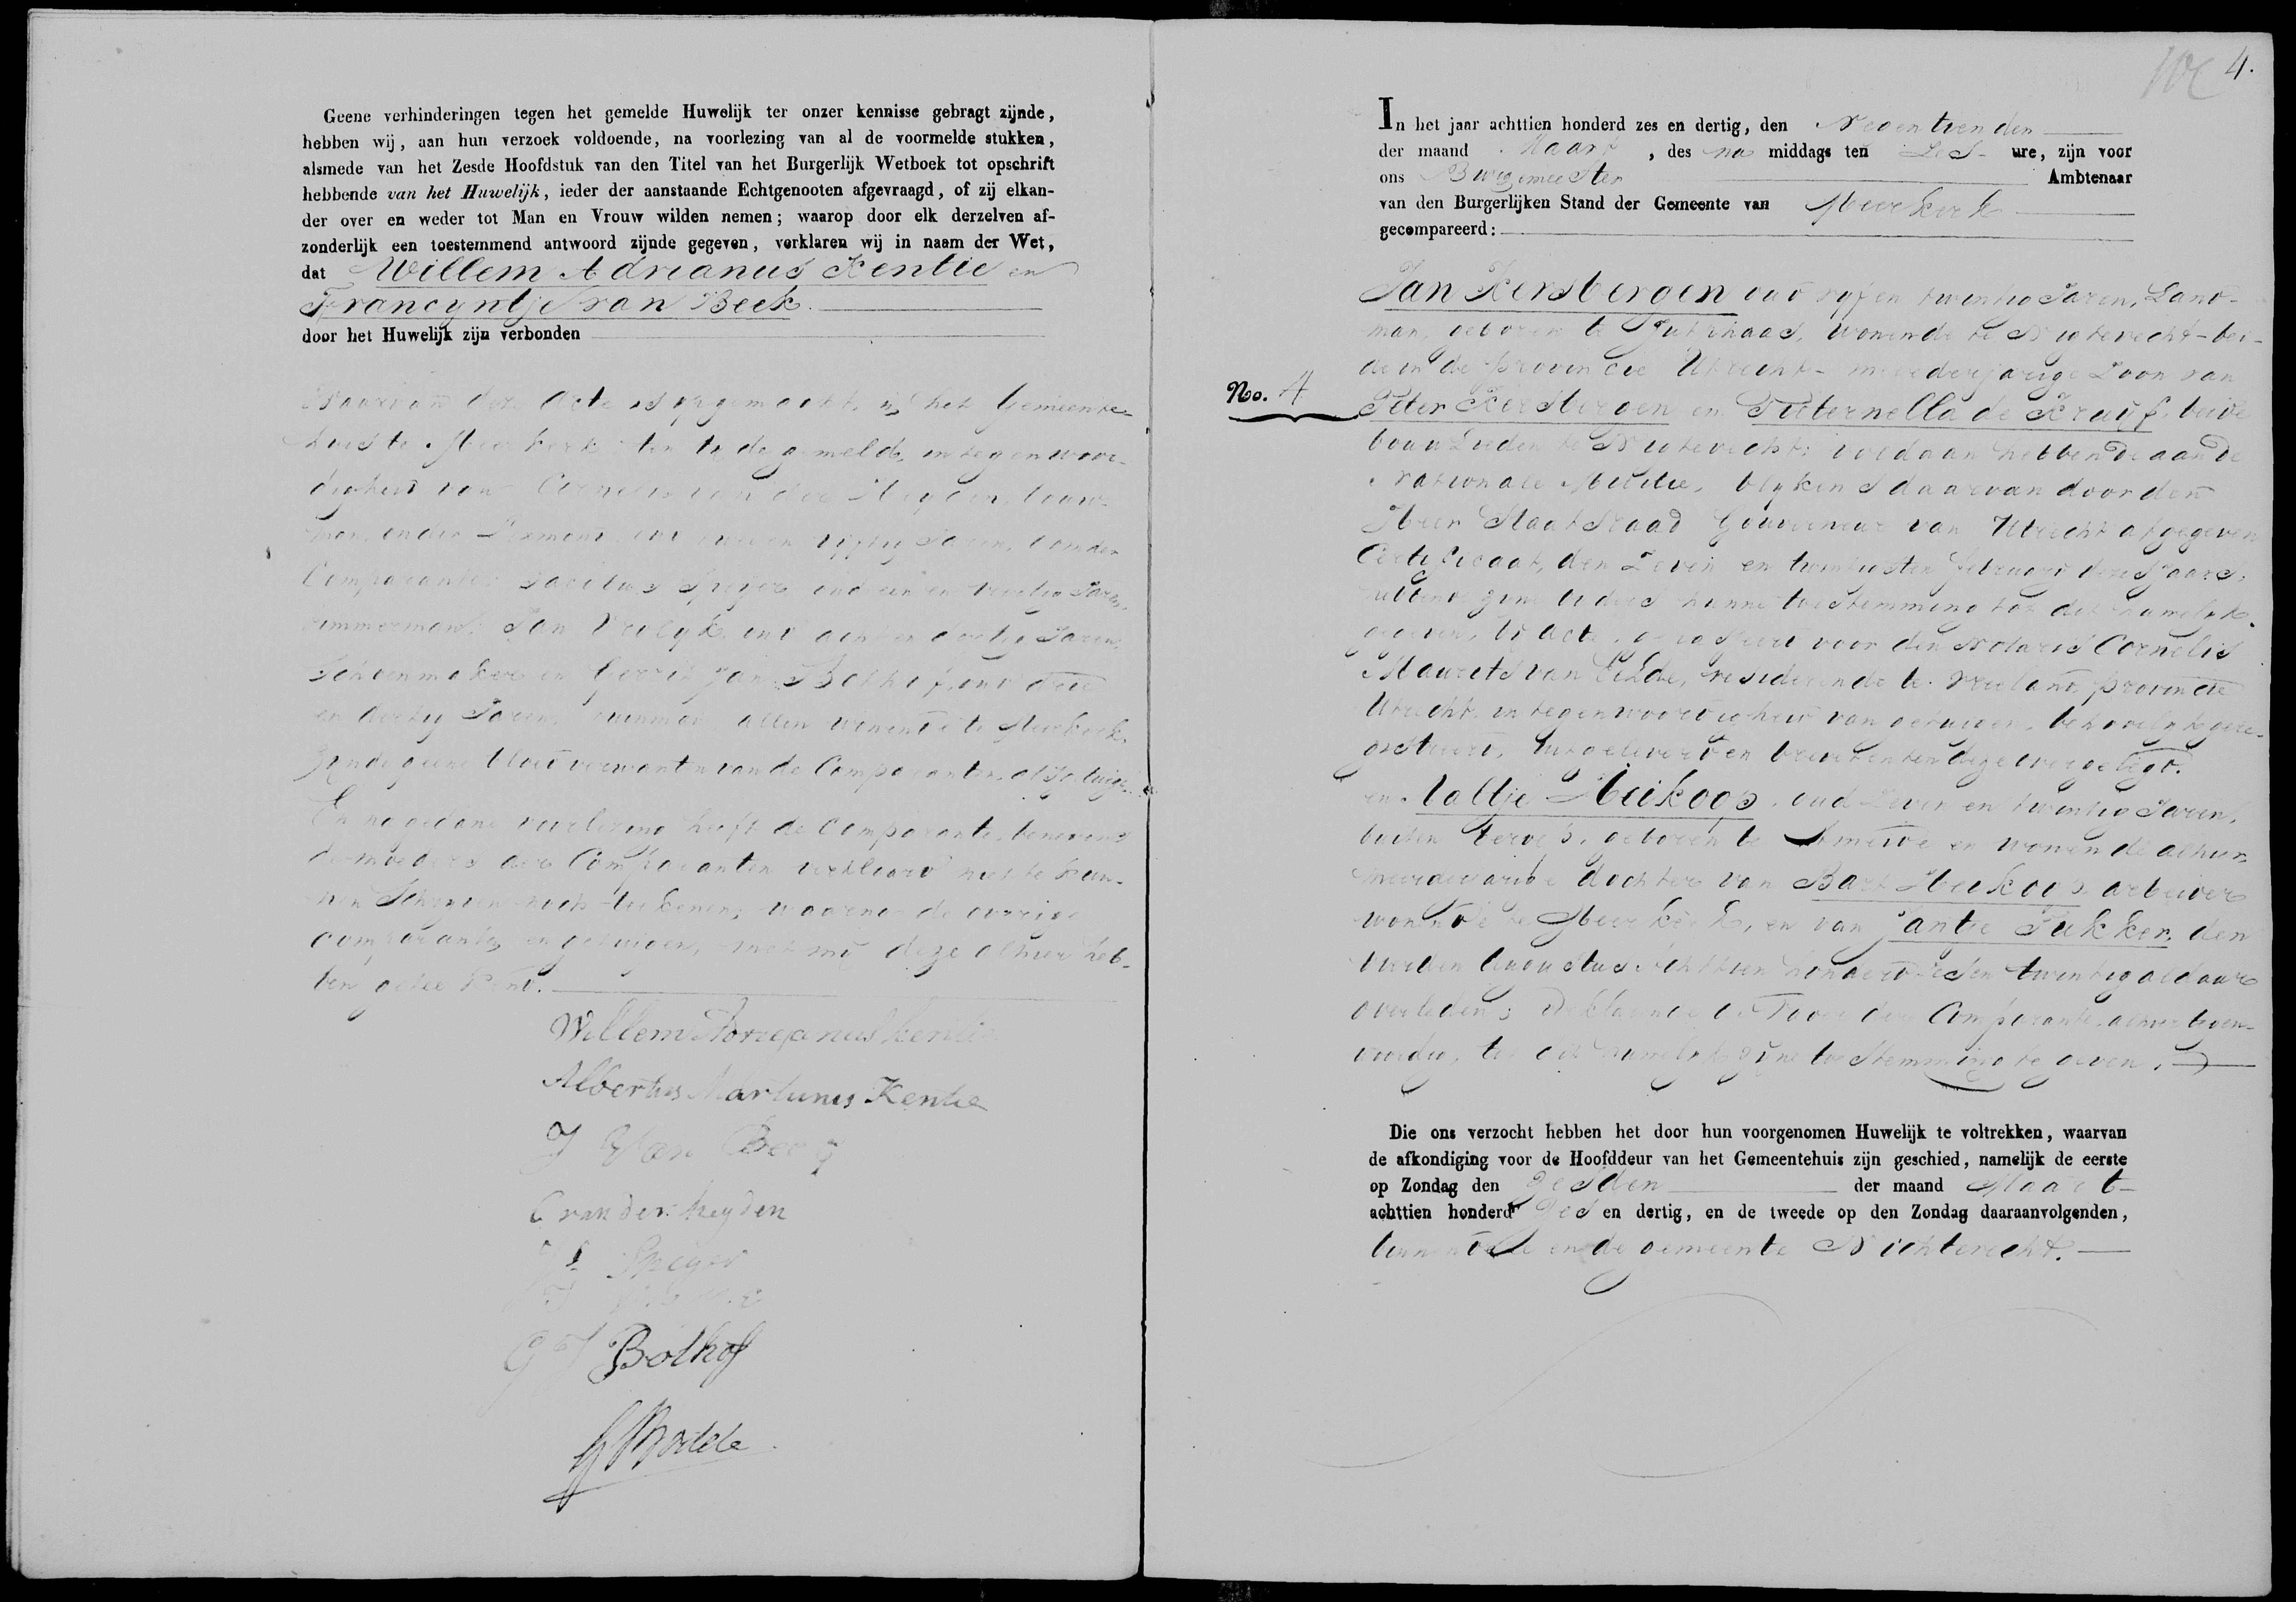 Geene verhinderingen tegen het gemelde Huwelijk ter onzer kennisse gebragt zijnde,
hebben wij, aan hun verzoek voldoende, na voorlezing van al de voormelde stukken,
alsmede van het Zesde Hoofdstuk van den Titel van het Burgerlijk Wetboek tot opschrift
hebbende van het Huwelijk, ieder der aanstaande Echtgenooten afgevraagd, of zij elkan-
der over en weder tot Man en Vrouw wilden nemen; waarop door elk derzelven af-
zonderlijk een toestemmend antwoord zijnde gegeven, verklaren wij in naam der Wet,
dat Willem Adrianus Kentie en
Francyntje van Beek.
door het Huwelijk zijn verbonden
Waarvan deze Acte is opgemaakt in het Gemeente
huis te Meerkerk ten tyde gemeld, in tegenwoor-
digheid van Cornelis van der Heyden, bouw-
man, onder Lexmond, oud en vyftig Jaren,
Comparante Jacobus Speyer oud een en veertig Jaren,
timmerman, Jan oud acht en dertig Jaren,
Schoenmaker en Gerrit Jan Bolhof, oud drie
en dertig Jaren, allen wonende te Meerkerk
Zynde geene bloedverwanten van de Comparanten, als getuigen.
En na gedane voorlezing heeft de Comparante, benevens
de moeders der Comparanten verklaard niet te kun-
nen Schryven noch teekenen, waarna de overige
comparanten en getuigen, met my deze alhier heb-
ben geteekend.
Willem Adrejanus Kentie
Albertus Martinus Kentie
J Van
C van der heyden
Js Speyer
G J Bolhof
4.
In het jaar achttien honderd zes en dertig, den Negentienden
der maand Maart, des na middags ten Zes ure, zijn voor
ons Burgemeester Ambtenaar
van den Burgerlijken Stand der Gemeente van Meerkerk
gecompareerd:
No. 4
Jan Kersbergen oud vyf en twintig Jaren, Land-
man, geboren te Jutphaas, wonende te Nigtevecht - bei-
de in de provincie Utrecht - meerderjarige Zoon van
Peter Kersbergen en Pieternella de Kruijf, beide
bouwlieden te Nigtevecht; voldaan hebbende aan de
Nationale Militie, blykens daarvan door den
Heer Staatsraad Gouverneur van Utrecht afgegeven
Certificaat, den Zeven en twintigsten February dezes Jaars,
hebbende zyne ouders hunne toestemming tot dit huwelyk
gegeven, by acte, gepasseerd voor den Notaris Cornelis
Maurits van Eelde, residerende te Vreeland, provincie
Utrecht, in tegenwoordigheid van getuigen, behoorlyk gere-
gistreerd,
en Aaltje Heikoop, oud Zeven en twintig Jaren,
buiten beroep, geboren te Ameide en wonende alhier
meerderjarige dochter van Bart Heikoop, arbeider
wonende te Meerkerk, en van Jantje Pukker, den
vierden Augustus Achttien honderd zes en twintig aldaar
overleden; verklarende de Vader der Comparante, alhier tegen-
woordig, tot dit huwelyk zyne toestemming te geven.
Die ons verzocht hebben het door hun voorgenomen Huwelijk te voltrekken, waarvan
de afkondiging voor de Hoofddeur van het Gemeentehuis zijn geschied, namelijk de eerste
op Zondag den Zesden der maand Maart
achttien honderd Zes en dertig, en de tweede op den Zondag daaraanvolgenden,
binnen deze en de gemeente Nichtevecht.